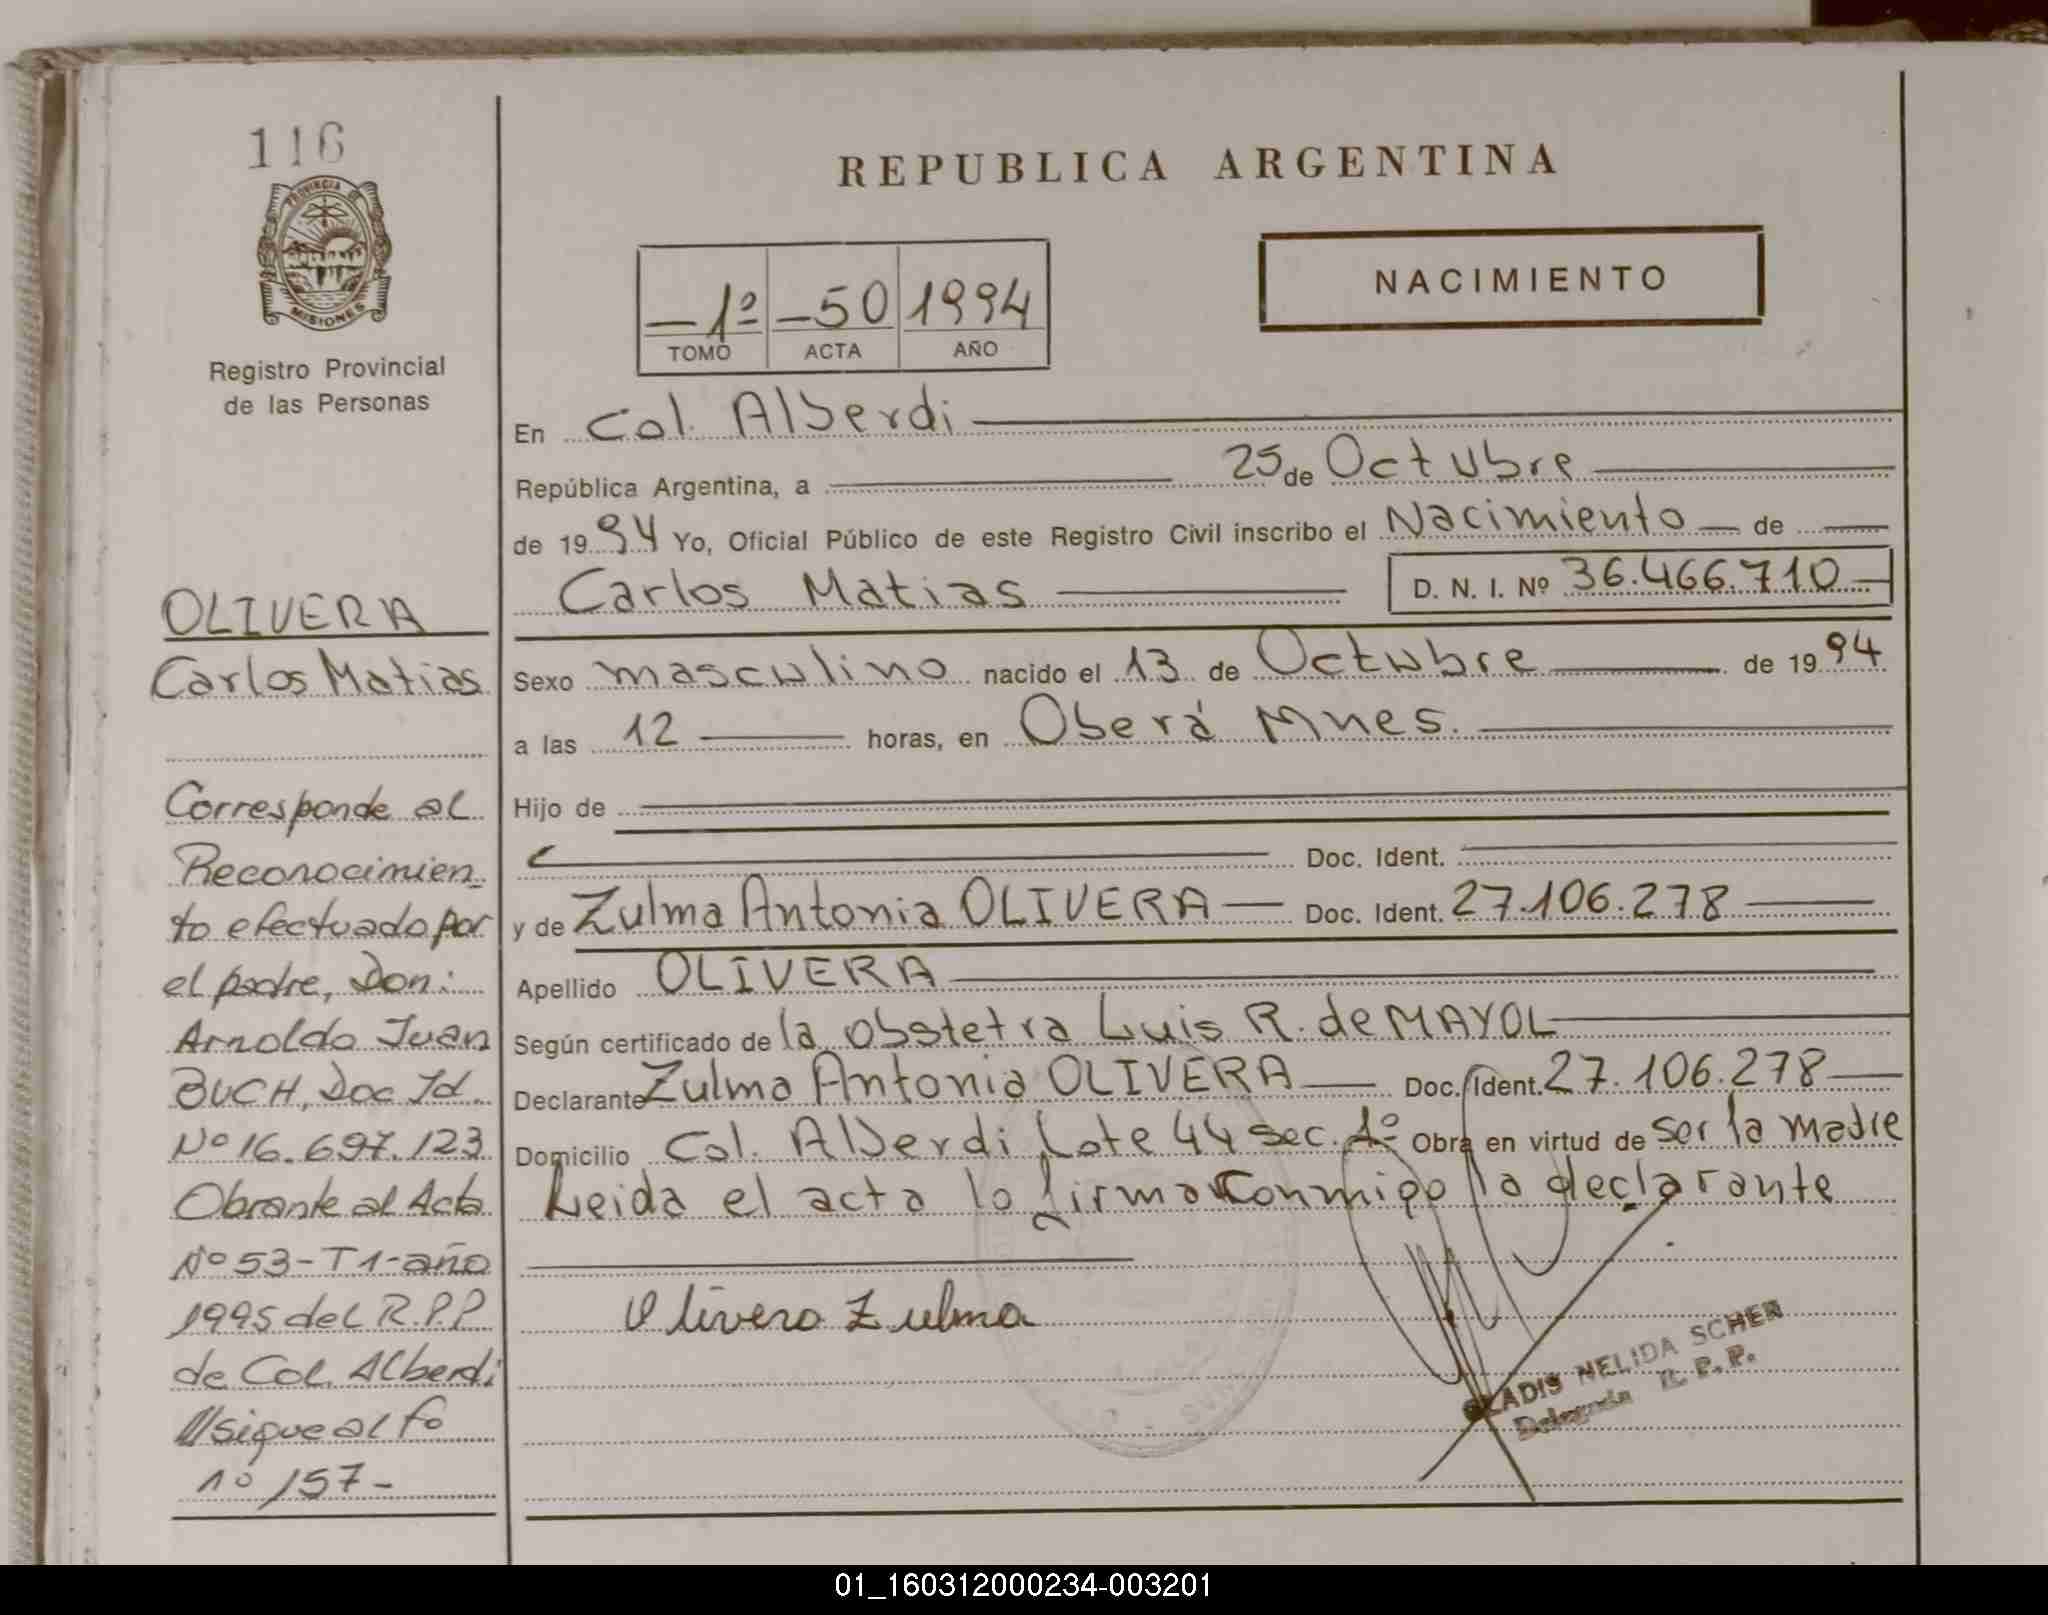 116
PROVINCIA DE
MISIONES
Registro Provincial
de las Personas
REPUBLICA ARGENTINA
NACIMIENTO
1º -50 1994
TOMO ACTA AÑO
En Col. Alberdi
República Argentina, a 25 de Octubre
de 1994 Yo, Oficial Público de este Registro Civil inscribo el Nacimiento de
Carlos Matias D. N. I. Nº 36.466.710
Sexo masculino nacido el 13 de Octubre de 1994
a las 12 horas, en Oberá Mnes.
Hijo de
Doc. Ident.
y de Zulma Antonia OLIVERA Doc. Ident. 27.106.278
Apellido OLIVERA
Según certificado de la obstetra Luis R. de MAYOL
Declarante Zulma Antonia OLIVERA Doc. Ident. 27.106.278
Domicilio Col. Alberdi Lote 44 sec. 1º Obra en virtud de ser la madre
Leida el acta lo firma conmigo la declarante
Olivera Zulma
GLADIS NELIDA SCHER
Delegada R. P. P.
OLIVERA
Carlos Matias
Corresponde al
Reconocimien-
to efectuado por
el padre, Don:
Arnoldo Juan
BUCH, Doc Id.
Nº 16.697.123
Obrante al Acta
Nº 53-T1-año
1995 del R.P.P
de Col. Alberdi
//sigue al fo
nº 157-
01_160312000234-003201